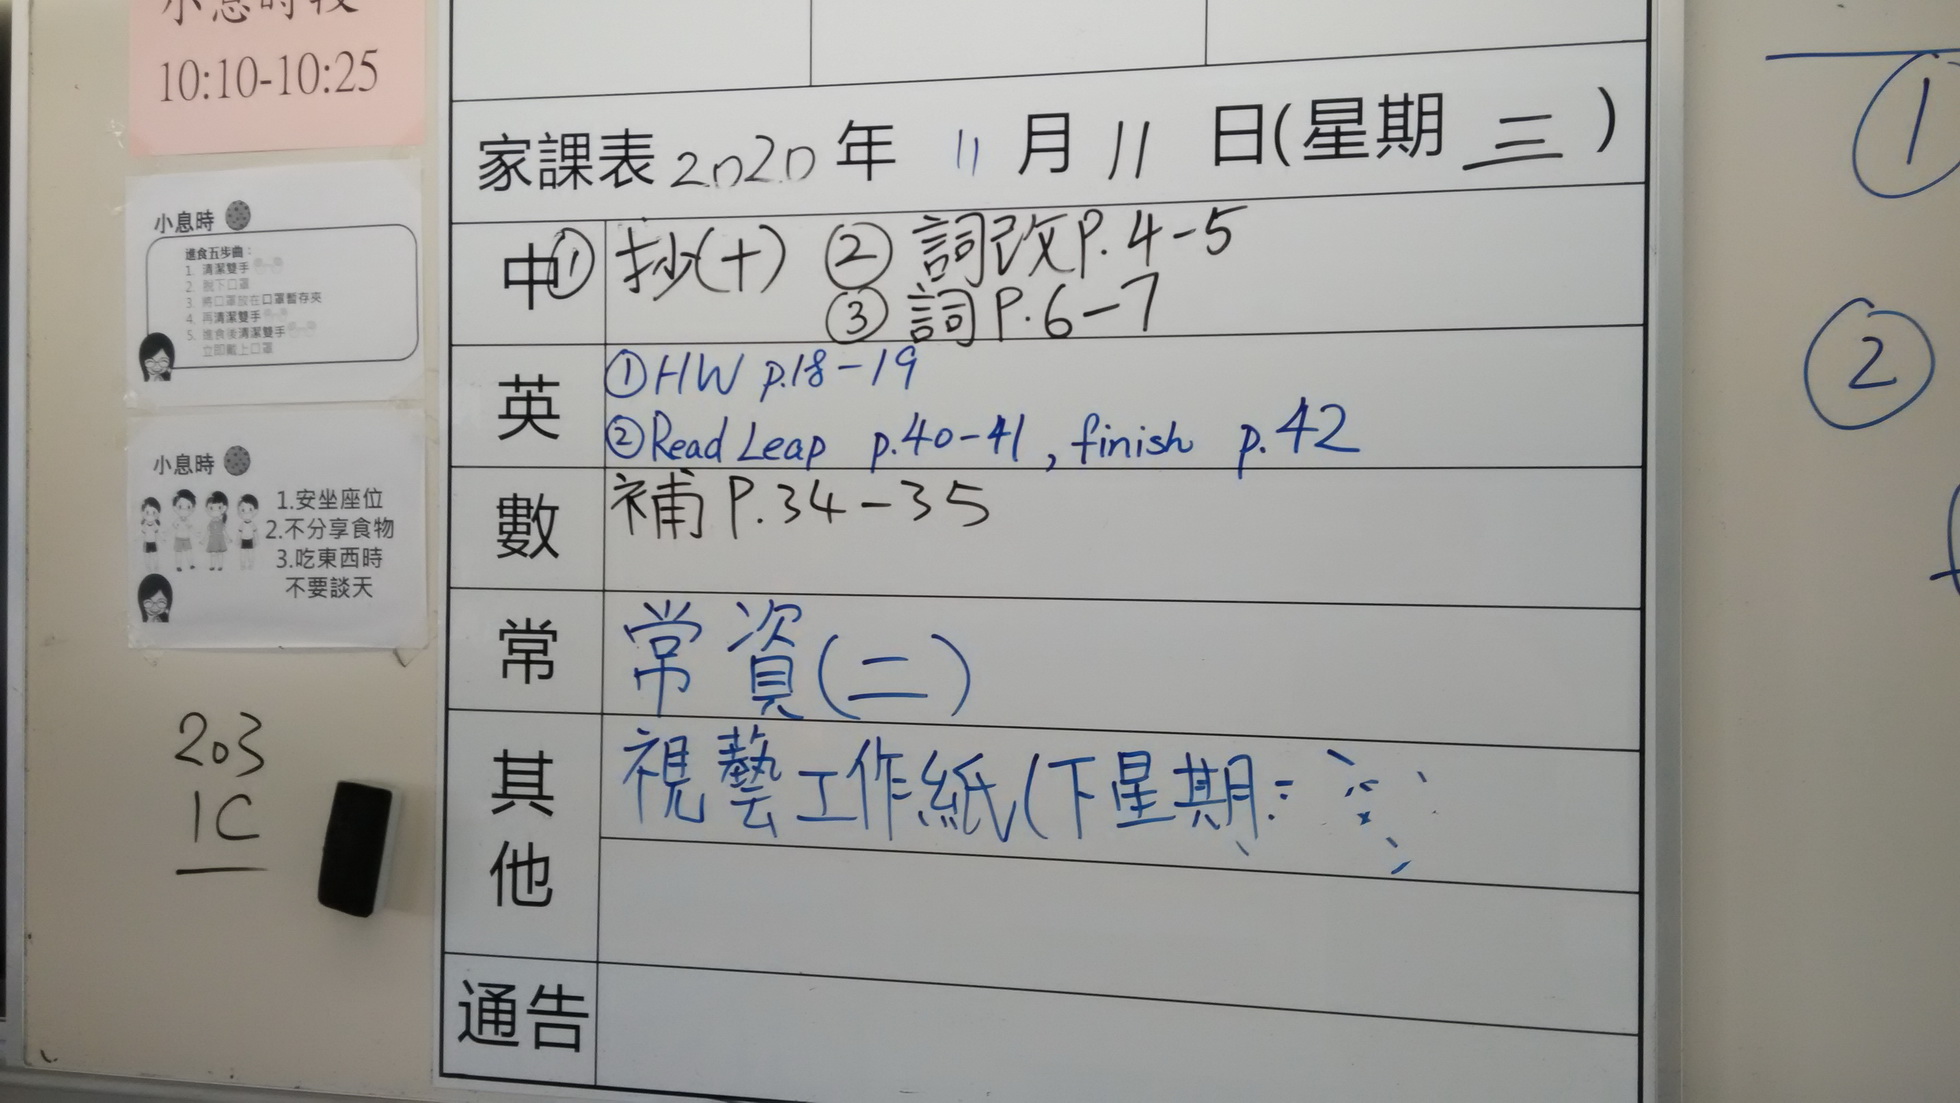 小息時段
10:10-10:25
小息時
進食五步曲：
1. 清潔雙手
2. 脫下口罩
3. 將口罩放在口罩暫存夾
4. 再清潔雙手
5. 進食後清潔雙手
立即戴上口罩
小息時
1.安坐座位
2.不分享食物
3.吃東西時
不要談天
203
1C
家課表 2020 年 11 月 11 日(星期 三 )
中 ① 抄(十) ② 詞改P.4-5
③ 詞P.6-7
英 ①HW p.18-19
②Read Leap p.40-41, finish p.42
數 補P.34-35
常 常資(二)
其他 視藝工作紙(下星期
通告
①
②